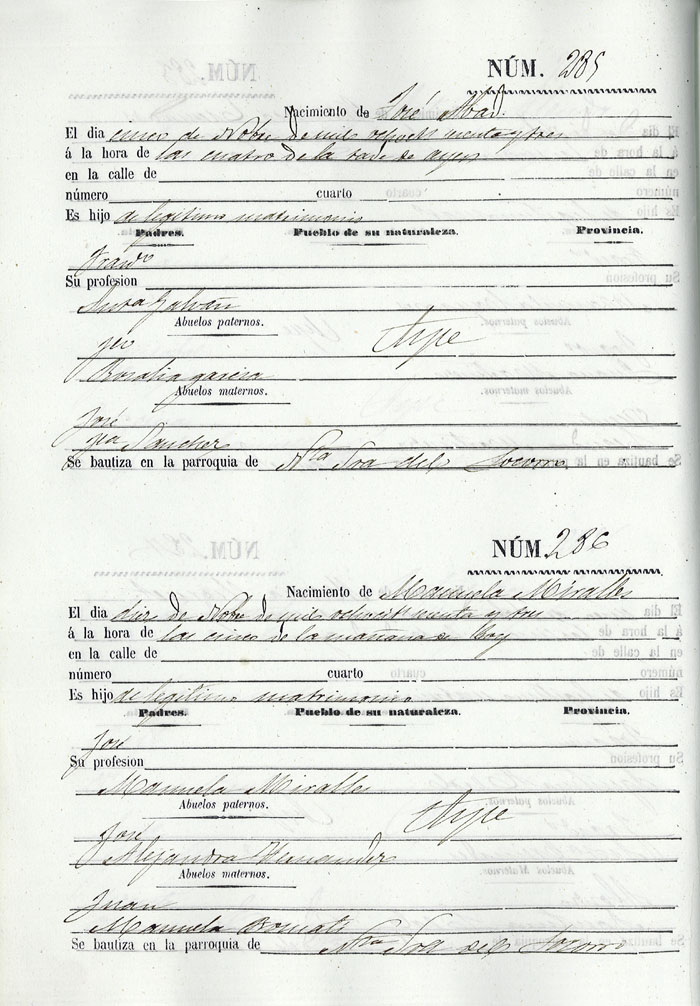 NÚM. 285
Nacimiento de José Abad
El dia cinco de Nobre de mil ochocts nventa y tres
á la hora de las cuatro de la tarde de ayer
en la calle de
número cuarto
Es hijo de legitimo matrimonio
Padres. Pueblo de su naturaleza. Provincia.
Franco
Su profesion
Galvan
Abuelos paternos.
Aspe
Rosalia Garcia
Abuelos maternos.
José
Sanchez
Se bautiza en la parroquia de Nta Sra del Socorro
NÚM. 286
Nacimiento de Manuela Miralles
El dia diez de Nobre de mil ochocts nventa y tres
á la hora de las cinco de la mañana de hoy
en la calle de
número cuarto
Es hijo de legitimo matrimonio
Padres. Pueblo de su naturaleza. Provincia.
José
Su profesion
Manuela Miralles
Abuelos paternos.
José Aspe
Alejandra Hernandez
Abuelos maternos.
Juan
Manuela
Se bautiza en la parroquia de Ntra Sra del Socorro